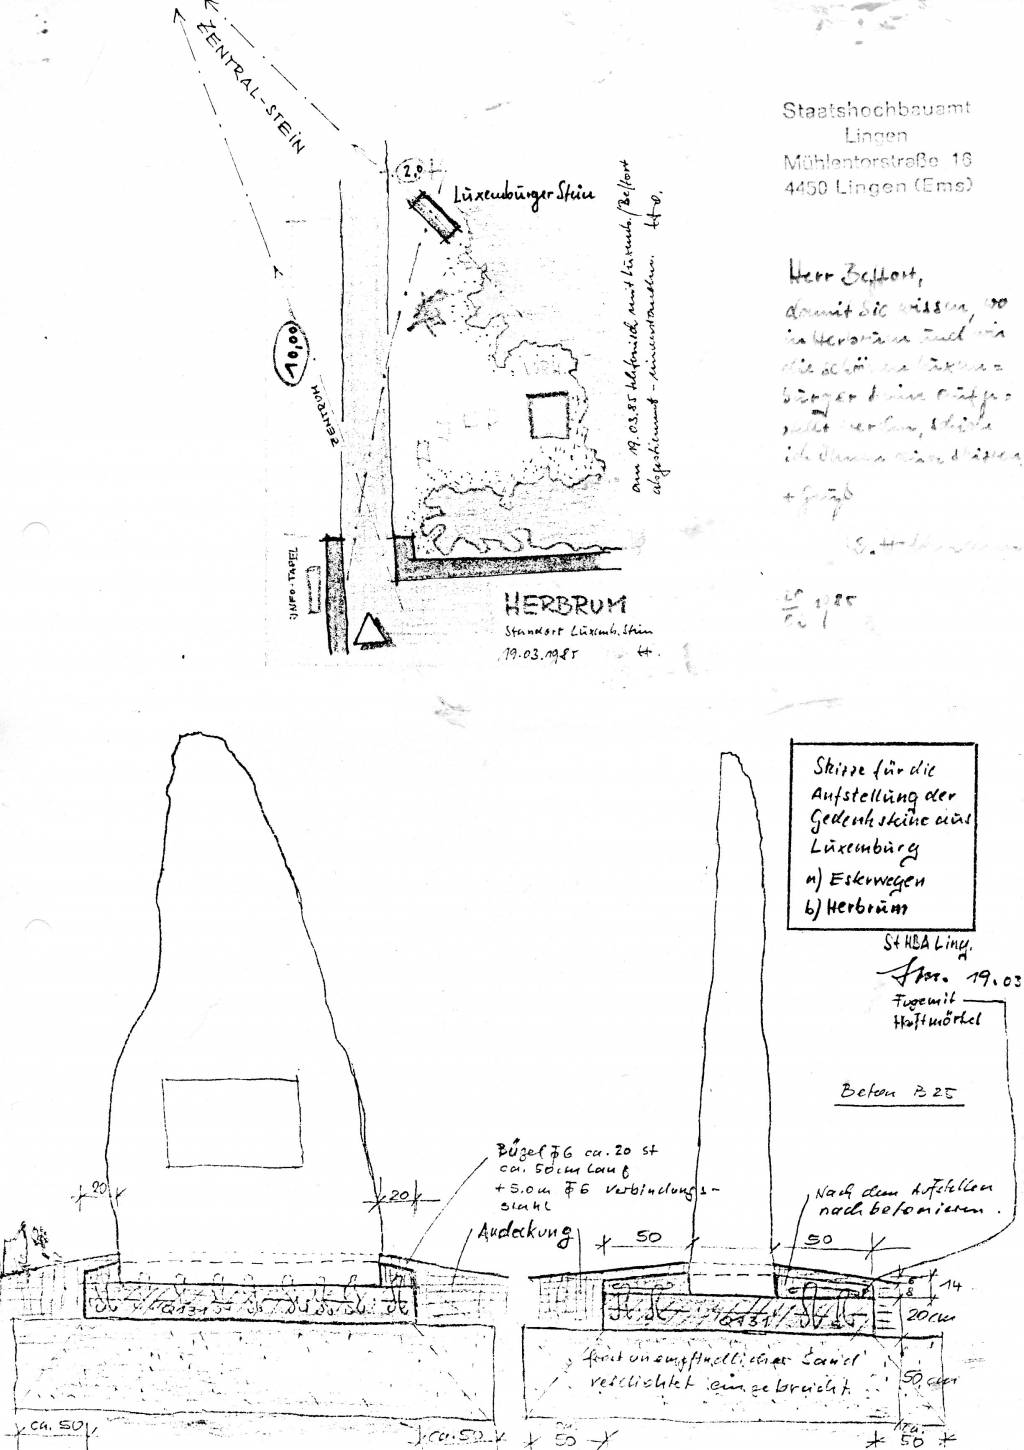 ZENTRAL-STEIN
2,0
Luxemburger Stein
10,00
ZENTRUM
am 19.03.85 telefonisch mit Luxemb./Beffort
abgestimmt - einverstanden.
INFO-TAFEL
HERBRUM
Standort Luxemb. Stein
19.03.1985 H.
Staatshochbauamt
Lingen
Mühlentorstraße 16
4450 Lingen (Ems)
Herr Beffort,
damit Sie wissen, wo
in Herbrum und wie
die schönen Luxem=
burger Steine aufge-
stellt werden, schicke
ich Ihnen eine Skizze,
+ Gruß
1985
Skizze für die
Aufstellung der
Gedenksteine aus
Luxemburg
a) Esterwegen
b) Herbrum
StHBA Ling.
19.03
Fuge mit
Haftmörtel
Beton B 25
Bügel ϕ6 ca. 20 st
ca. 50cm lang
+ 5.0m ϕ6 Verbindungs-
stahl
Andeckung
Nach dem Aufstellen
nachbetonieren.
20
20
50
50
14
6
8
20cm
Q131
Q131
frostunempfindlicher Sand
verdichtet eingebracht
50cm
ca. 50
ca. 50
50
ca.
50